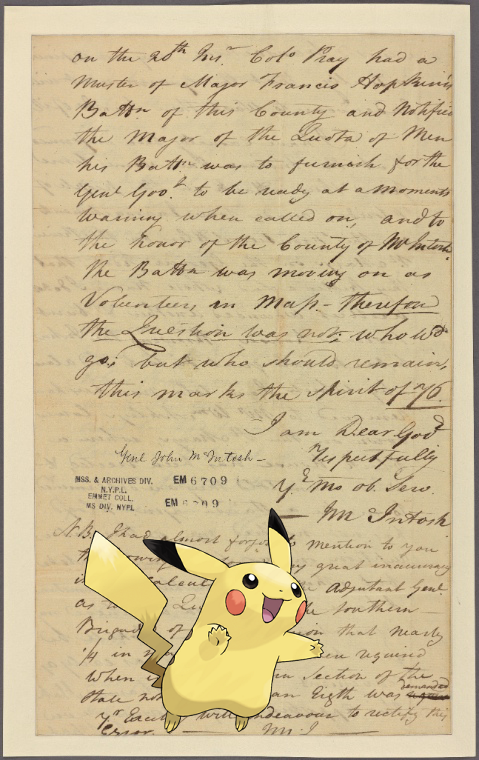 on the 20th Inst. Colo Pray had a
Muster of Major Francis Hopkins's
Battn of this County and Notified
the Major of the Quota of Men
his Battn was to furnish for the
Genl Govt to be ready at a moments
warning when called on, and to
the honor of the County of McIntosh
the Battn was moving on as
Volunteers in Mass - therefore
the Question was not, who wod
go; but who should remain,
this marks the Spirit of 76.
I am Dear Govr
Respectfully
Yr Mo ob. Serv.
Genl John McIntosh -
- McIntosh
MSS. & ARCHIVES DIV.
N.Y.P.L.
EMMET COLL.
MS DIV. NYPL
EM 6709
EM 09
N.B. I had almost forgot mention to you
great inaccuracy
Adjutant Genl
as Southern
Brigade of that nearly
1/4 in required
when in Section of the
State not an Eigth was demanded
Yr Excell will endeavour to rectify this
Error. - McI